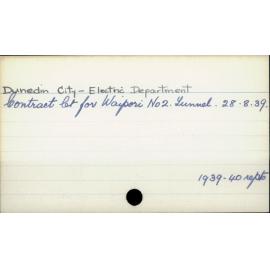 Dunedin City - Electric Department
Contract let for Waipori No2. Tunnel. 28-8-39.
1939-40 repts